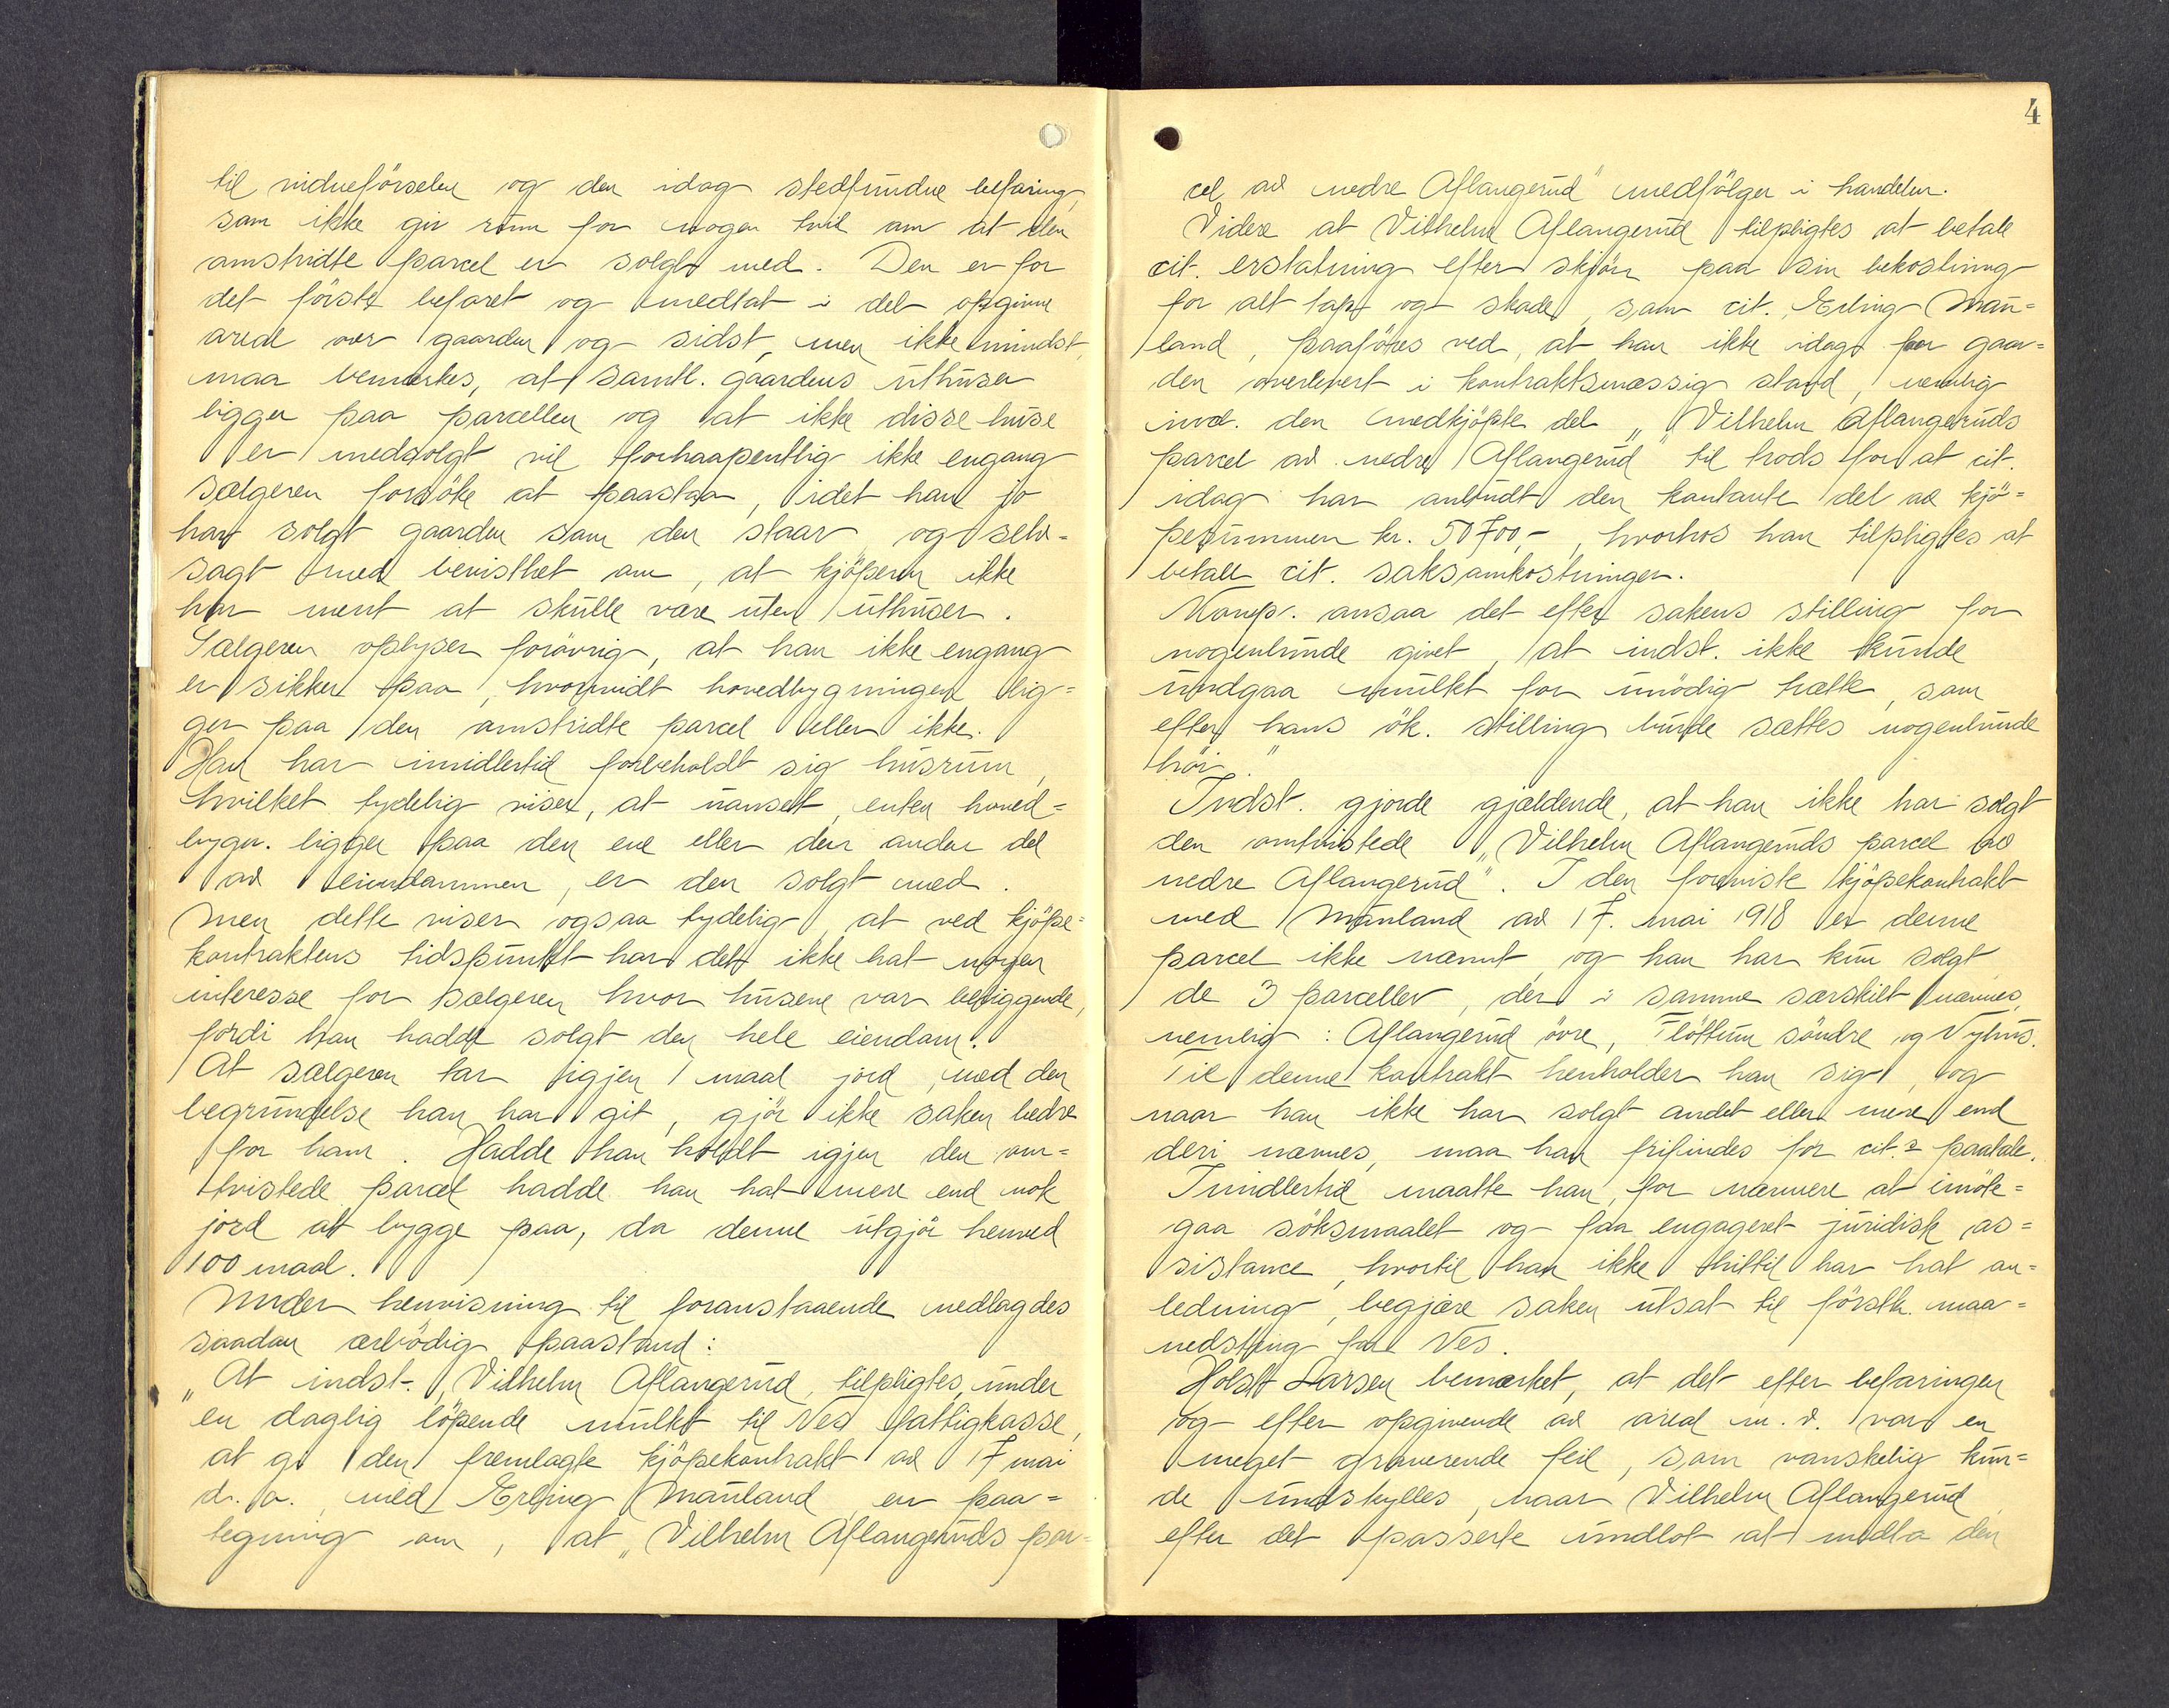 til vidneförselen og den idag stedfundne befaring,
som ikke gir rum for nogen tvil om at den
omstridte parcel er solgt med. Den er for
det första befaret og medtat i det opgivne
areal over gaarden og sidst, men ikke mindst,
maa bemerkes, at samtl. gaardens uthuser
ligger paa parcellen og at ikke disse huse
er medsolgt vil forhaapentlig ikke engang
sælgeren forsöke at paastaa, idet han jo
har solgt gaarden som den staar og selv-
sagt med bevissthet om, at kjöperen ikke
har ment at skulle være uten uthuser.
Sælgeren oplyser forövrig, at han ikke engang
er sikker paa, hvorvidt hovedbygningen lig-
ger paa den omstridte parcel eller ikke.
Han har imidlertid forbeholdt sig husrum,
hvilket tydelig viser, at uanset, enten hoved-
bygn. ligger paa den ene eller den anden del
av eiendommen, er den solgt med.
Men dette viser ogsaa tydelig, at ved kjöpe-
kontraktens tidspunkt har det ikke hat nogen
interesse for sælgeren hvor husene var beliggende,
fordi han hadde solgt den hele eiendom.
At sælgeren tar igjen 1 maal jord, med den
begrundelse han har git, gjör ikke saken bedre
for ham. Hadde han holdt igjen den om-
tvistede parcel hadde han hat mere end nok
jord at bygge paa, da denne utgjör henved
100 maal.
Under henvisning til foranstaaende nedlagdes
saadan ærbödig paastand:
„At indst. Vilhelm Aflangerud, tilpligtes, under
en daglig löpende mulkt til Nes fattigkasse,
at gi den fremlagte kjöpekontrakt av 17 mai
d. a. med Erling Mauland en paa-
tegning om, at „Vilhelm Aflangeruds par-
4
cel av nedre Aflangerud" medfölger i handelen.
Videre at Vilhelm Aflangerud tilpligtes at betale
cit. erstatning efter skjön paa sin bekostning
for alt tap og skade, som cit. Erling Mau-
land, paaföres ved, at han ikke idag faar gaar-
den overlevert i kontraktsmæssig stand, nemlig
incl. den medkjöpte del „Vilhelm Aflangeruds
parcel av nedre Aflangerud" til trods for at cit.
idag har anbudt den kontante del av kjö-
pesummen kr. 50700,-, hvorhos han tilpligtes at
betale cit. saksomkostninger.
Komp. ansaa det efter sakens stilling for
nogenlunde givet, at indst. ikke kunde
undgaa mulkt for unödig trætte, som
efter hans ök. stilling burde sættes nogenlunde
höi."
Indst. gjorde gjældende, at han ikke har solgt
den omtvistede „Vilhelm Aflangeruds parcel av
nedre Aflangerud". I den foreviste kjöpekontrakt
med Mauland av 17. mai 1918 er denne
parcel ikke nævnt og han har kun solgt
de 3 parceller, der i samme særskilt nævnes,
nemlig: Aflangerud övre, Flöttum söndre og Nyhus.
Til denne kontrakt henholder han sig, og
naar han ikke har solgt andet eller mere end
deri nævnes, maa han frifindes for cit.s paatale.
Imidlertid maatte han, for nærmere at imöte-
gaa söksmaalet og faa engageret juridisk as-
sistance, hvortil han ikke hittil har hat an-
ledning, begjære saken utsat til förstk. maa-
nedsting for Nes.
Holst Larsen bemærket, at det efter befaringen
og efter opgivende av areal m. v. var en
meget graverende feil, som vanskelig kun-
de undskyldes, naar Vilhelm Aflangerud
efter det passerte undlot at medta den